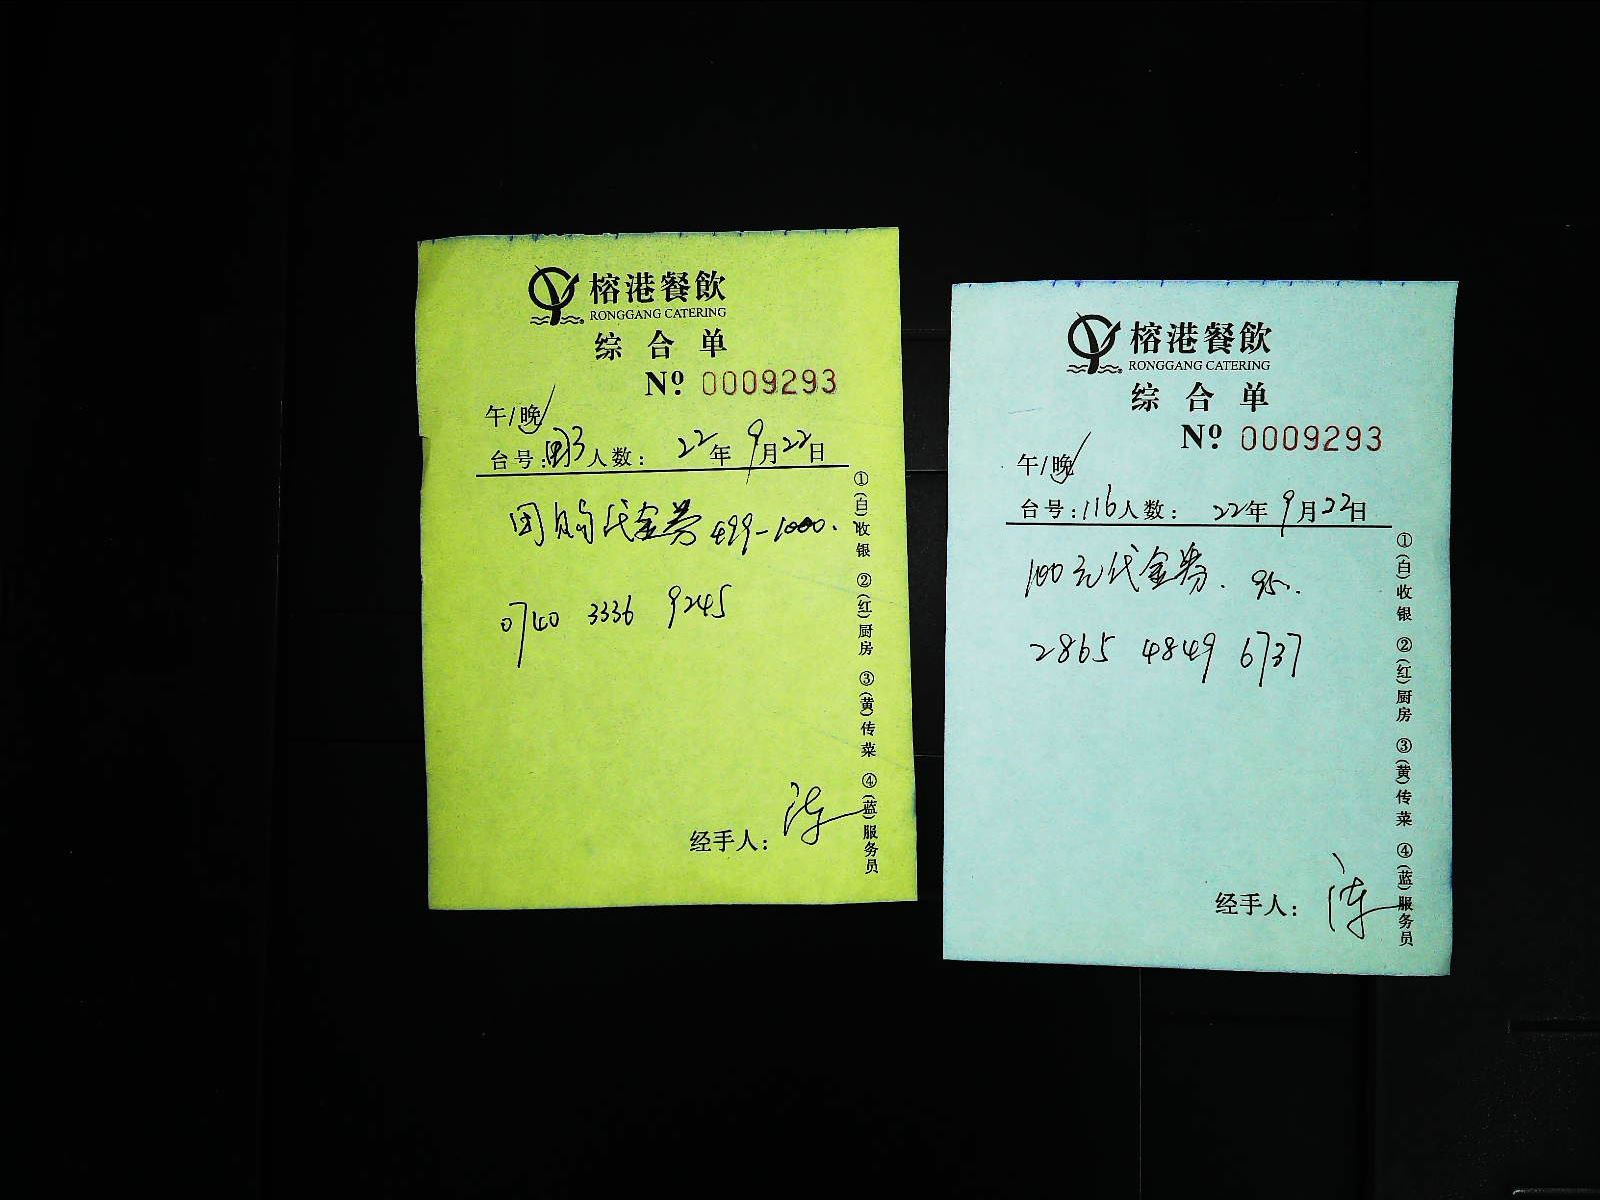 榕港餐飲
RONGGANG CATERING
综合单
Nº 0009293
午/晚
台号: 人数: 22年9月22日
团购代金券 499-1000.
0740 3336 9245
经手人: 陈
①(白)收银 ②(红)厨房 ③(黄)传菜 ④(蓝)服务员
榕港餐飲
RONGGANG CATERING
综合单
Nº 0009293
午/晚
台号:116人数: 22年9月22日
100元代金券. 95.
2865 4849 6737
经手人: 陈
①(白)收银 ②(红)厨房 ③(黄)传菜 ④(蓝)服务员